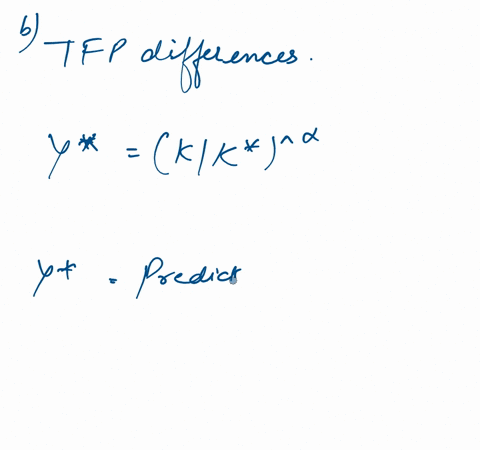 b)
TFP differences.
y* = (K/K*)^α
y* = Predict